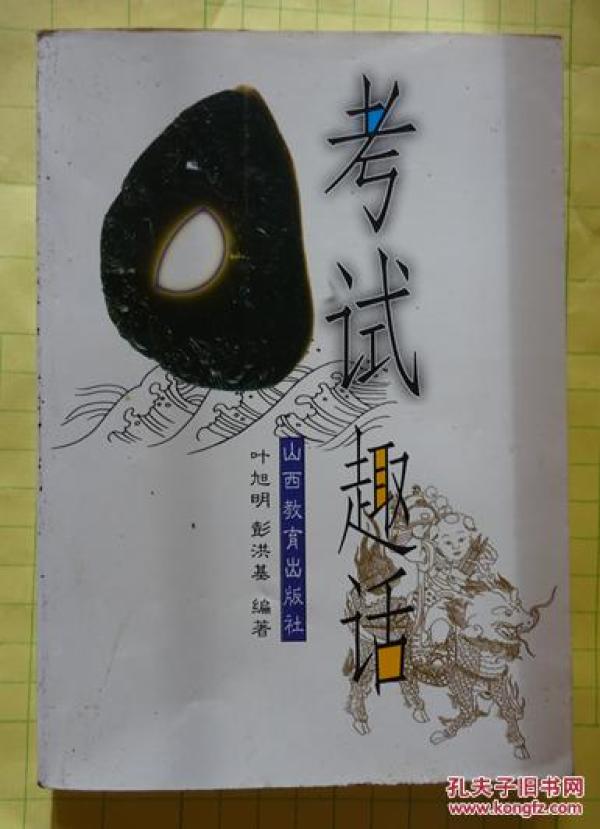 考试趣话
山西教育出版社
叶旭明 彭洪基 编著
孔夫子旧书网
www.kongfz.com